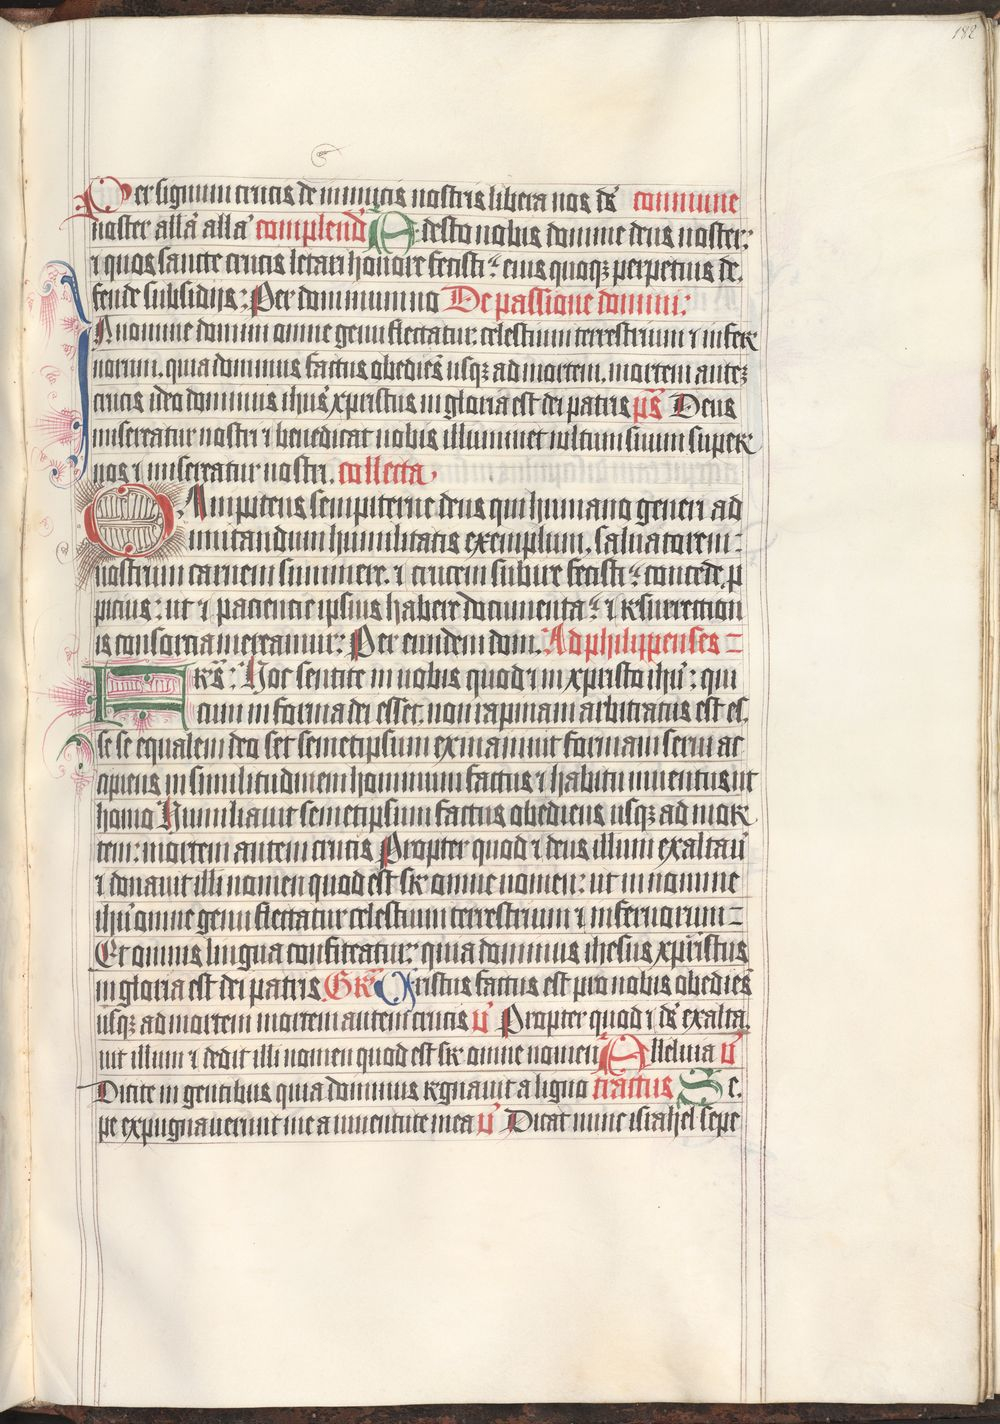 182
Per signum crucis de inimicis nostris libera nos ds̄ commune
noster allā allā complend̄ Adesto nobis domine deus noster:
⁊ quos sancte crucis letari honore fecisti: eius quoqꝫ perpetuis de.
fende subsidijs: Per dominum no De passione domini:
In nomine domini omne genu flectatur: celestium terrestrium ⁊ infer
norum. quia dominus factus obediēs usqꝫ ad mortem. mortem autēꝫ
crucis ideo dominus ihūs xpristus in gloria est dei patris ps̄ Deus
misereatur nostri ⁊ benedicat nobis illuminet uultum suum super
nos ⁊ misereatur nostri. collecta.
Omnipotens sempiterne deus qui humano generi ad
imitandum humilitatis exemplum. saluatorem:
nostrum carnem summere. ⁊ crucem subire fecisti: concede. p
picius: ut ⁊ paciencie ipsius habere documenta: ⁊ resurrection
is consorcia mereamur: Per eundem dom. Ad philippenses
Frs̄: Hoc sentite in uobis quod ⁊ in xpristo ihū: qui
cum in forma dei esset: non rapinam arbitratus est es,
se se equalem deo set semetipsum exinaniuit formam serui ac
cipiens in similitudinem hominum factus ⁊ habitu inuentus ut
homo Humiliauit semetipsum factus obediens usqꝫ ad mor
tem: mortem autem crucis Propter quod ⁊ deus illum exaltau̅
⁊ donauit illi nomen quod est sr omne nomen: ut in nomine
ihū omne genu flectatur celestium terrestrium ⁊ infernorum
Et omnis lingua confiteatur: quia dominus ihesus xpristus
in gloria est dei patris. Gr̄ Xpistus factus est pro nobis obediēs
usqꝫ ad mortem mortem autem crucis v̄ Propter quod ⁊ ds̄ exalta.
uit illum ⁊ dedit illi nomen quod est sr omne nomen Alleluia v̄
Dicite in gentibus quia dominus regnauit a ligno tractus Se.
pe expugnauerunt me a iuuentute mea v̄ Dicat nunc israhel sepe